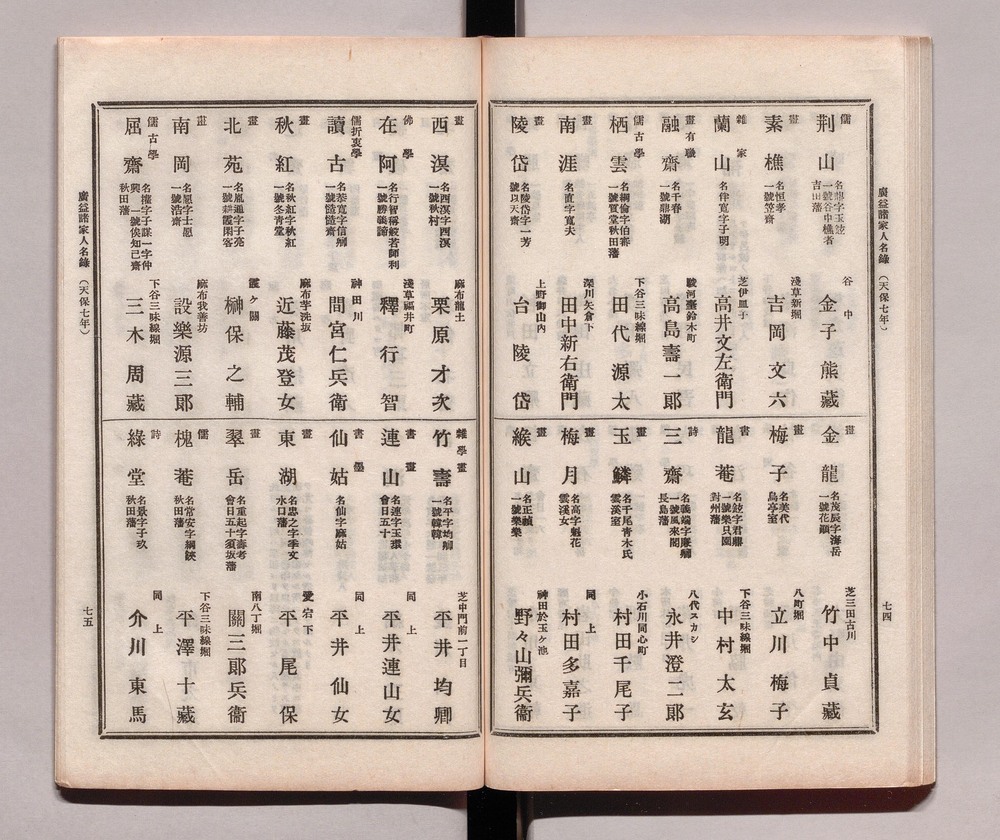 廣益諸家人名錄（天保七年）
七四
儒
荊山
名龍字玉立
一號谷中樵者
吉田藩
谷中
金子熊藏
畫
素樵
名恒孝
一號笠齋
淺草新堀
吉岡文六
雜家
蘭山
名伴寬字子明
芝伊皿子
高井文左衞門
畫有職
融齋
名千春
一號鼎湖
駿河臺鈴木町
高島壽一郞
儒古學
栖雲
名綱倫字伯壽
一號寬堂秋田藩
下谷三味線堀
田代源太
畫
南涯
名直字寬夫
深川矢倉下
田中新右衞門
畫
陵岱
名陵岱字一芳
號以天齋
上野御山內
台陵岱
畫
金龍
名茂辰字海岳
一號花顚
芝三田古川
竹中貞藏
畫
梅子
名美代
鳥亭室
八町堀
立川梅子
書
龍菴
一號樂只園
對州藩
下谷三味線堀
中村太玄
詩
三齋
一號風來閣
長島藩
八代スカシ
永井澄二郞
畫
玉鱗
名千尾靑木氏
雲溪室
小石川同心町
村田千尾子
畫
梅月
名高字魁花
雲溪女
同上
村田多嘉子
畫
緱山
名正禎
一號樂樂
神田於玉ケ池
野々山彌兵衞
畫
西溟
名西溟字西溟
一號秋村
麻布龍土
栗原才次
佛學
在阿
名行智稱般若師利
一號勝義諦
淺草福井町
釋行智
儒折衷學
讀古
名恭寬字信卿
一號愷愷齋
神田川
間宮仁兵衞
畫
秋紅
名秋紅字秋紅
一號冬靑堂
麻布芋洗坂
近藤茂登女
畫
北苑
名胤通字子亮
一號耕霞閑客
霞ケ關
榊保之輔
畫
南岡
名愿字士愿
一號浩齋
麻布我善坊
設樂源三郞
儒古學
屈齋
名擁字子謀一字仲
興 一號俟知己齋
秋田藩
下谷三味線堀
三木周藏
雜學畫
竹壽
名平字均卿
一號韓韓
芝中門前一丁目
平井均卿
書畫
連山
名連字玉環
會日五十
同上
平井連山女
書墨
仙姑
名仙字麻姑
同上
平井仙女
畫
東湖
名忠之字季文
水口藩
愛宕下
平尾保
畫
翠岳
名重起字壽考
會日五十須坂藩
南八丁堀
關三郞兵衞
儒
槐菴
名常安字綱鋏
秋田藩
下谷三味線堀
平澤十藏
詩
綠堂
名景字子玖
秋田藩
同上
介川東馬
廣益諸家人名錄（天保七年）
七五